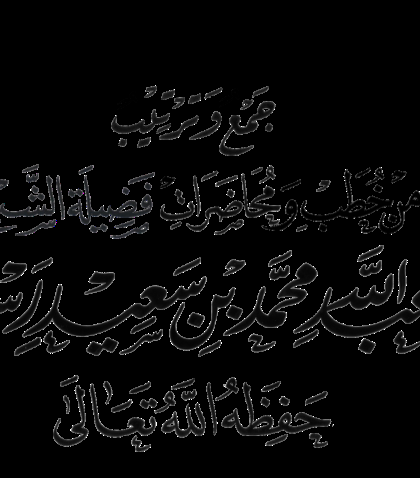 جَمْع وَتَرْتِيْب
مِنْ خُطَبْ وَمُحَاضِرَاتِ فَضِيلَةِ الشَّيْ
عبد اللهِ مُحَمَّد بْنِ سَعِيْد رَسْ
حَفِظَهُ اللَّهُ تَعَالَى